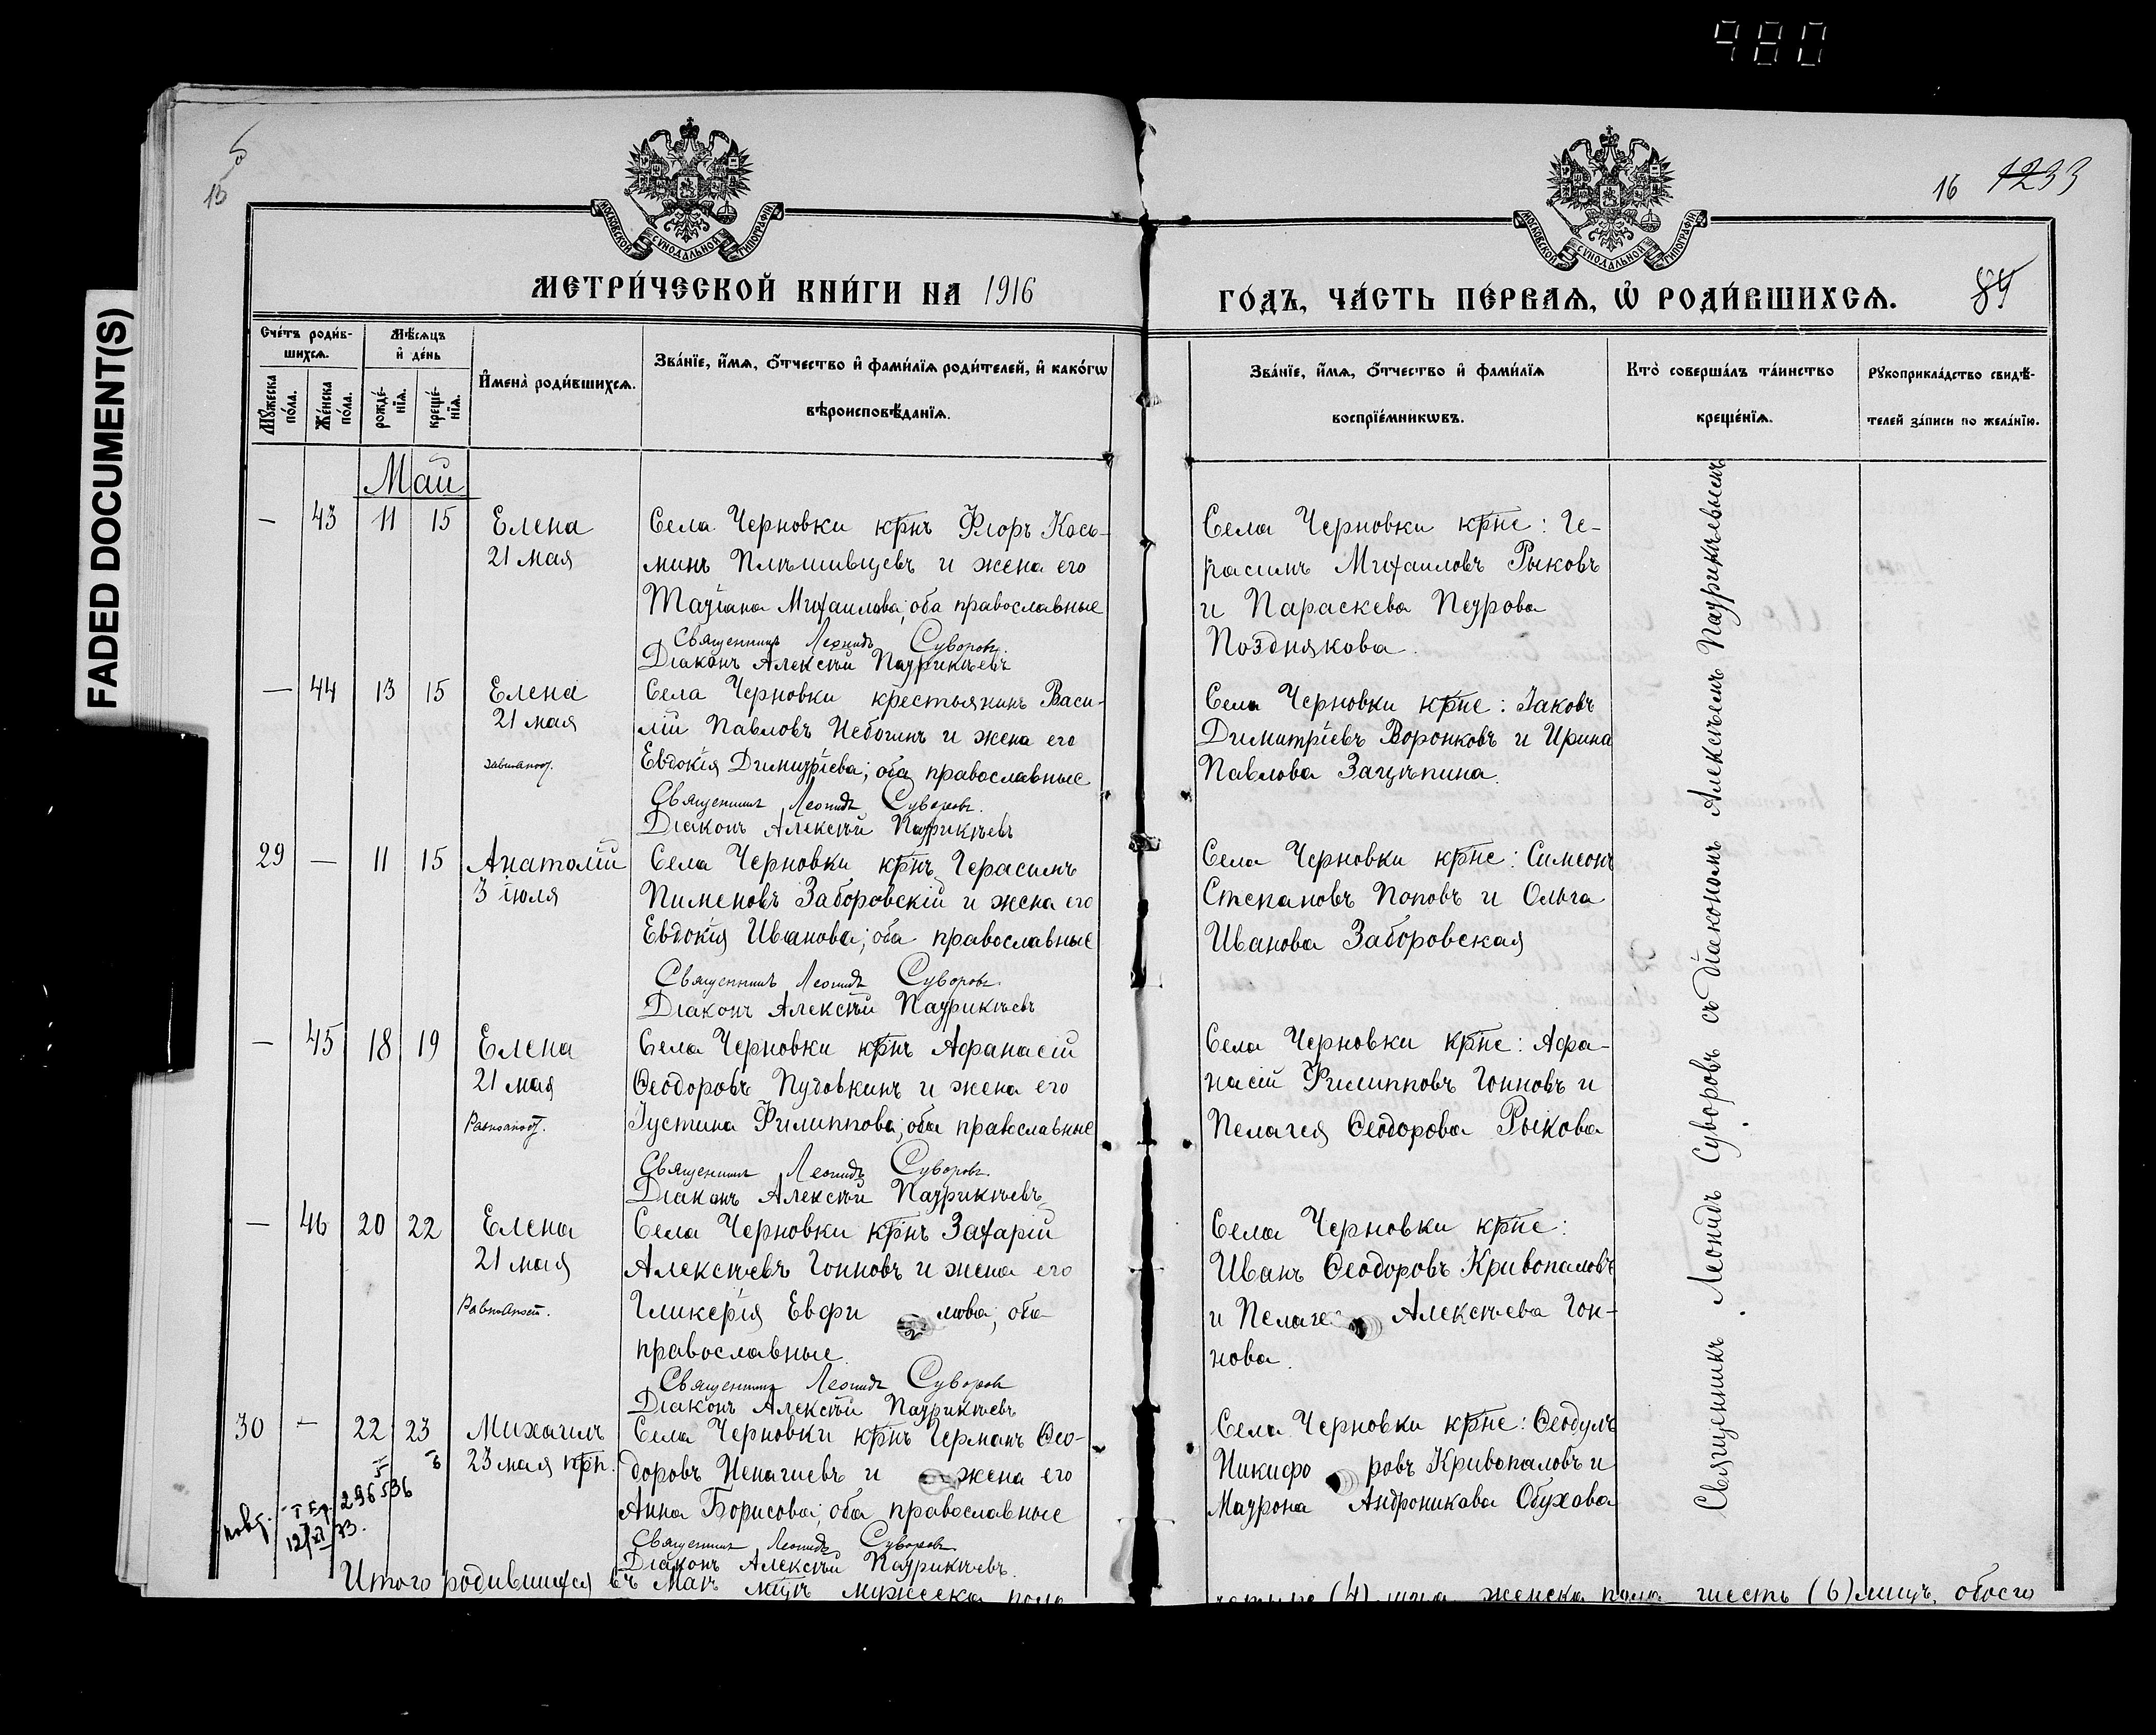 980
FADED DOCUMENT(S)
15
16 1233
МОСКОВСКОЙ СѴНОДАЛЬНОЙ ТИПОГРАФІИ
МОСКОВСКОЙ СѴНОДАЛЬНОЙ ТИПОГРАФІИ
МЕТРИ́ЧЕСКОЙ КНИ́ГИ НА 1916
ГО́ДЪ, ЧА́СТЬ ПЕ́РВАѦ, Ѡ҆ РОДИ́ВШИХСѦ.
Сче́тъ роди́в-
шихсѧ.
Мѹжеска
по́ла.
Же́нска
по́ла.
Мѣ́сѧцъ
и҆ де́нь
рожде́-
нїѧ.
креще́-
нїѧ.
И҆мена̀ роди́вшихсѧ.
Зва́нїе, и҆́мѧ, ѻ҆́тчество и҆ фами́лїѧ роди́телей, и҆ како́гѡ
вѣроисповѣ́данїѧ.
Зва́нїе, и҆́мѧ, ѻ҆́тчество и҆ фами́лїѧ
воспрїе́мникѡвъ.
Кто̀ соверша́лъ та́инство
креще́нїѧ.
Рѹкоприкла́дство свидѣ́-
телей за́писи по жела́нїю.
Май
— 43 11 15 Елена
21 мая
Села Черновки крнъ Флоръ Кось-
минъ Плѣшивцевъ и жена его
Татіана Михаилова; оба православные
Священникъ Леонидъ Суворовъ.
Діаконъ Алексѣй Патрикѣевъ
Села Черновки крне: Ге-
расимъ Михаиловъ Рыковъ
и Параскева Петрова
Позднякова.
— 44 13 15 Елена
21 мая
Села Черновки крестьянинъ Васи-
лій Павловъ Небогинъ и жена его
Евдокія Димитріева; оба православные
Священникъ Леонидъ Суворовъ.
Діаконъ Алексѣй Патрикѣевъ
Села Черновки крне: Іаковъ
Димитріевъ Воронковъ и Ирина
Павлова Зацѣпина.
29 — 11 15 Анатолій
3 іюля
Села Черновки крнъ Герасимъ
Пименовъ Заборовскій и жена его
Евдокія Иванова; оба православные
Священникъ Леонидъ Суворовъ.
Діаконъ Алексѣй Патрикѣевъ
Села Черновки крне: Симеонъ
Степановъ Поповъ и Ольга
Иванова Заборовская
— 45 18 19 Елена
21 мая
Равноапост.
Села Черновки крнъ Афанасій
Ѳеодоровъ Пуговкинъ и жена его
Іустина Филиппова; оба православные
Священникъ Леонидъ Суворовъ.
Діаконъ Алексѣй Патрикѣевъ
Села Черновки крне: Афа-
насій Филипповъ Гонновъ и
Пелагея Ѳеодорова Рыкова
— 46 20 22 Елена
21 мая
Равноапост.
Села Черновки крнъ Захарій
Алексѣевъ Гонновъ и жена его
Гликерія Евфи мова; оба
православные.
Священникъ Леонидъ Суворовъ
Діаконъ Алексѣй Патрикѣевъ
Села Черновки крне:
Иванъ Ѳеодоровъ Кривопаловъ
и Пелаге Алексѣева Гон-
нова.
30 — 22 23 Михаилъ
23 мая
Села Черновки крнъ Германъ Ѳео-
доровъ Ненашевъ и жена его
Анна Борисова; оба православные
Священникъ Леонидъ Суворовъ
Діаконъ Алексѣй Патрикѣевъ.
Села Черновки крне: Ѳеодулъ
Никифо ровъ Кривопаловъ и
Матрона Андроникова Обухова
296536
12/XI 33.
Священникъ Леонидъ Суворовъ съ діакономъ Алексѣемъ Патрикѣевымъ
Итого родившихся въ Маѣ мцѣ мужеска пола
четыре (4) лица женска пола шесть (6) лицъ, обоего